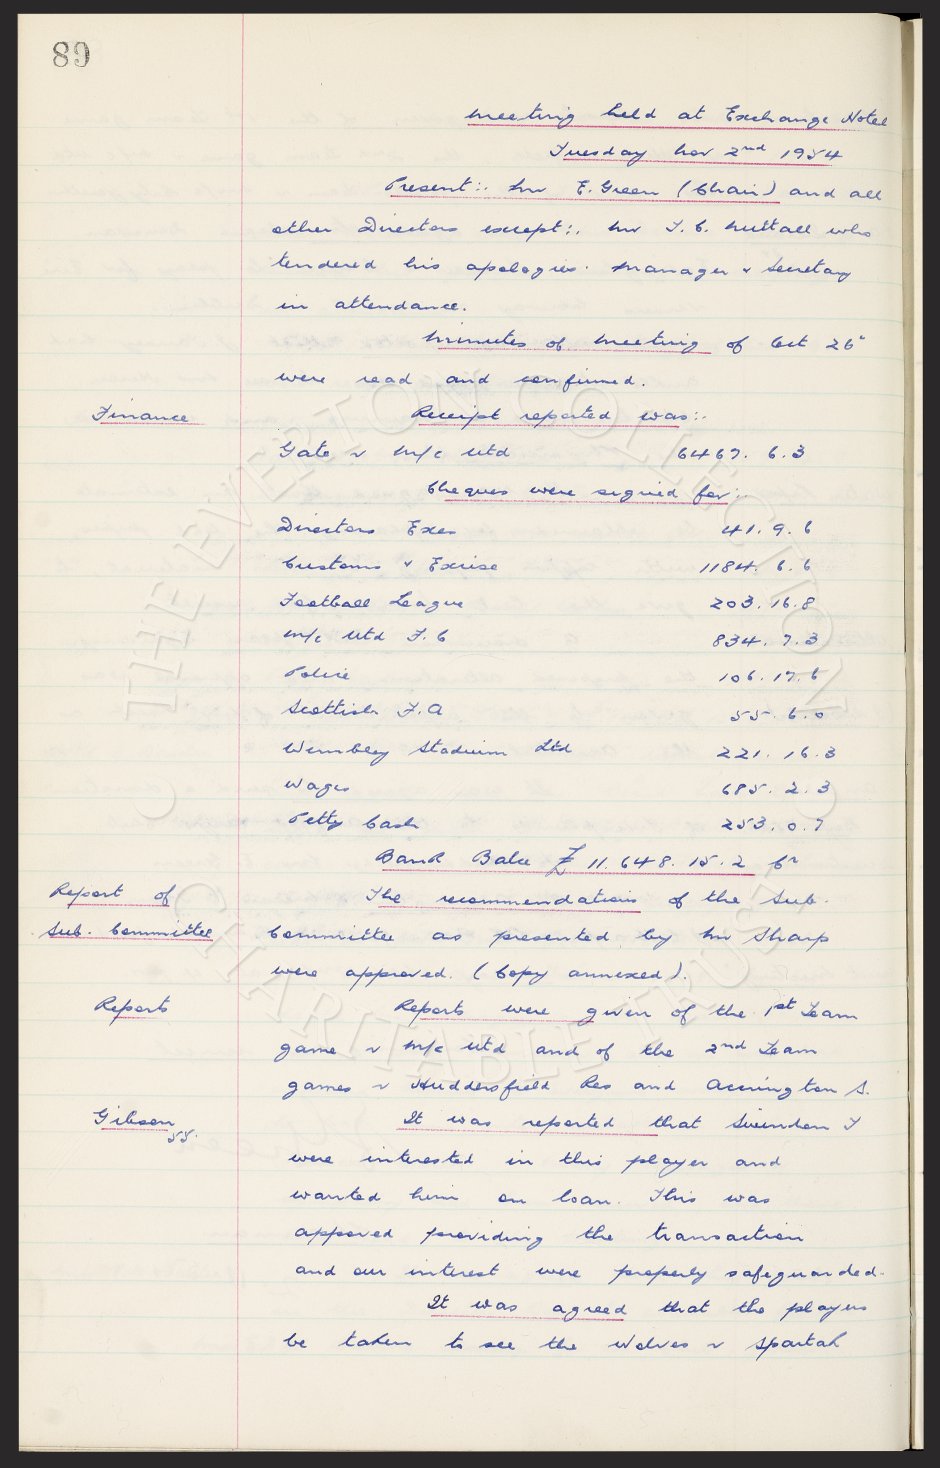 89
Meeting held at Exchange Hotel
Tuesday Nov 2nd 1954
Present:. Mr E. Green (Chair) and all
other Directors except:. Mr T. C. Nuttall who
tendered his apologies. Manager & Secretary
in attendance.
Minutes of Meeting of Oct 26"
were read and confirmed.
Finance Receipt reported was:.
Gate v M/c Utd 6467. 6. 3
Cheques were signed for:.
Directors Exes 41. 9. 6
Customs & Excise 1184. 6. 6
Football League 203. 16. 8
M/c Utd F. C 834. 7. 3
Police 106. 17. 6
Scottish F. A 55. 6. 0
Wembley Stadium Ltd 221. 16. 3
Wages 685. 2. 3
Petty Cash 253. 0. 7
Bank Balce £ 11.648. 15. 2 Cr
Report of The recommendations of the Sub.
Sub. Committee Committee as presented by Mr Sharp
were approved. (Copy annexed).
Reports Reports were given of the 1st Team
game v M/c Utd and of the 2nd Team
games v Huddersfield Res and Accrington S.
Gibson It was reported that Swindon T
55.
were interested in this player and
wanted him on loan. This was
approved providing the transaction
and our interest were properly safeguarded.
It was agreed that the players
be taken to see the Wolves v Spartak
THE EVERTON COLLECTION
CHARITABLE TRUST